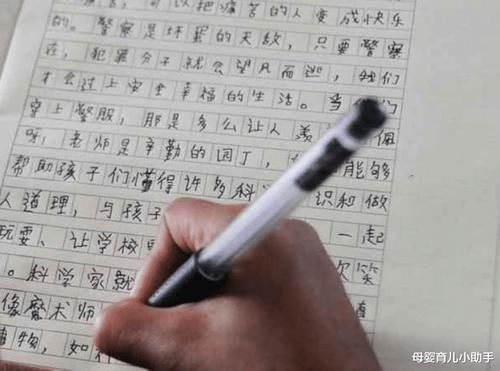 可以把痛苦的人变成快乐
的。警察是坏罪的天敌,只要警察
在,犯罪分子就会望风而逃,我们
才会过上安全幸福的生活。当
穿上警服,那是多么让人羡 佩
呀,老师是辛勤的园丁, 能够
帮助孩子们懂得许多科 识和做
人道理,与孩子 一起
玩耍、让学校
。科学家就 欢笑
像魔术师
植物,如
母婴育儿小助手